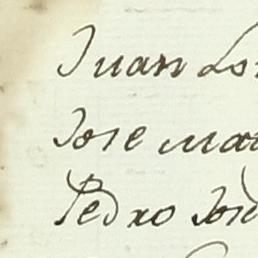 Juan Lo
Jose ma
Pedro Jose